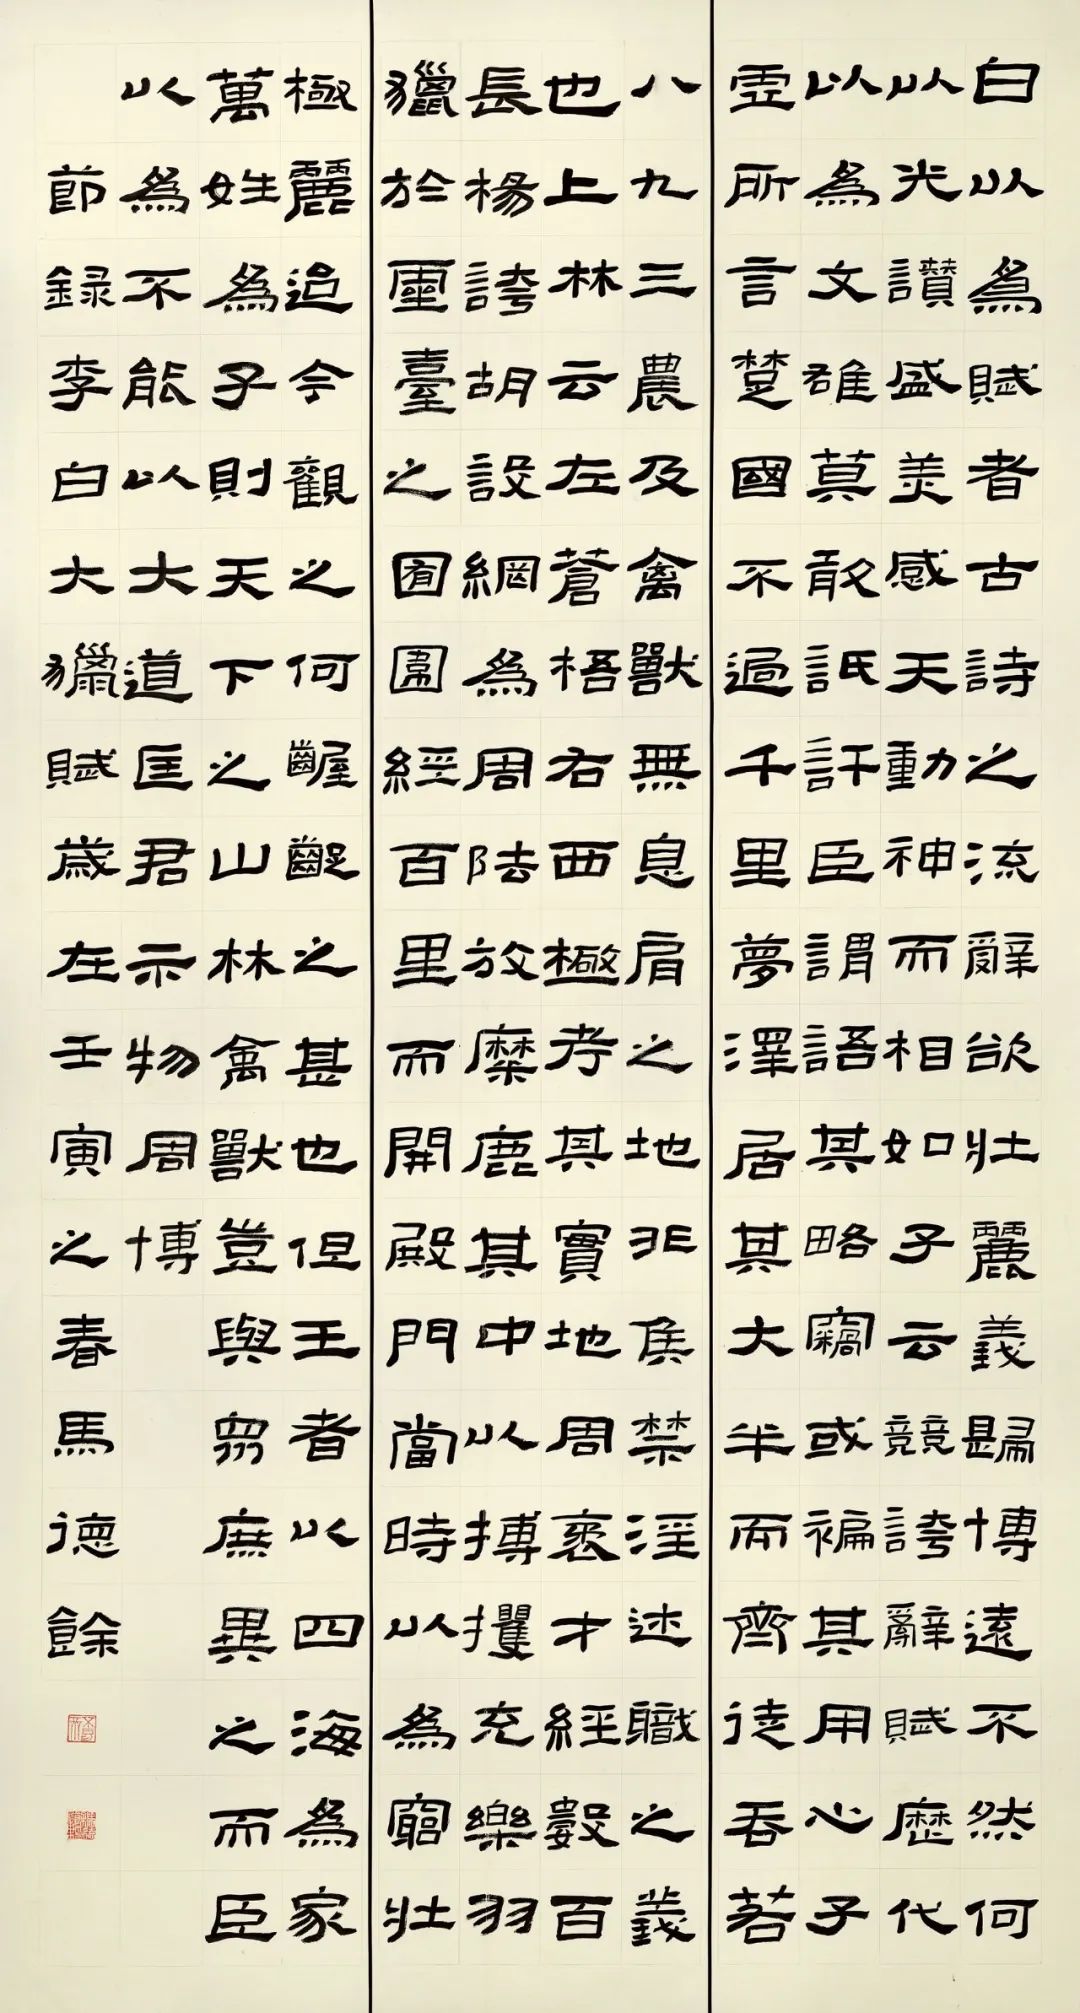 白以為賦者古詩之流辭欲壯麗義歸博遠不然何
以光讚盛美感天動神而相如子云競誇辭賦歷代
以為文雄莫敢詆訐臣謂語其略竊或褊其用心子
虛所言楚國不過千里夢澤居其大半而齊徒吞若
八九三農及禽獸無息肩之地非侯禁淫述職之義
也上林云左蒼梧右西極考其實地周袤才經數百
長楊誇胡設網為周阹放麋鹿其中以搏攫充樂羽
獵於靈臺之囿圍經百里而開殿門當時以為窮壯
極麗迨今觀之何齷齪之甚也但王者以四海為家
萬姓為子則天下之山林禽獸豈與眾庶異之而臣
以為不能以大道匡君示物周博
節録李白大獵賦歲在壬寅之春馬德餘